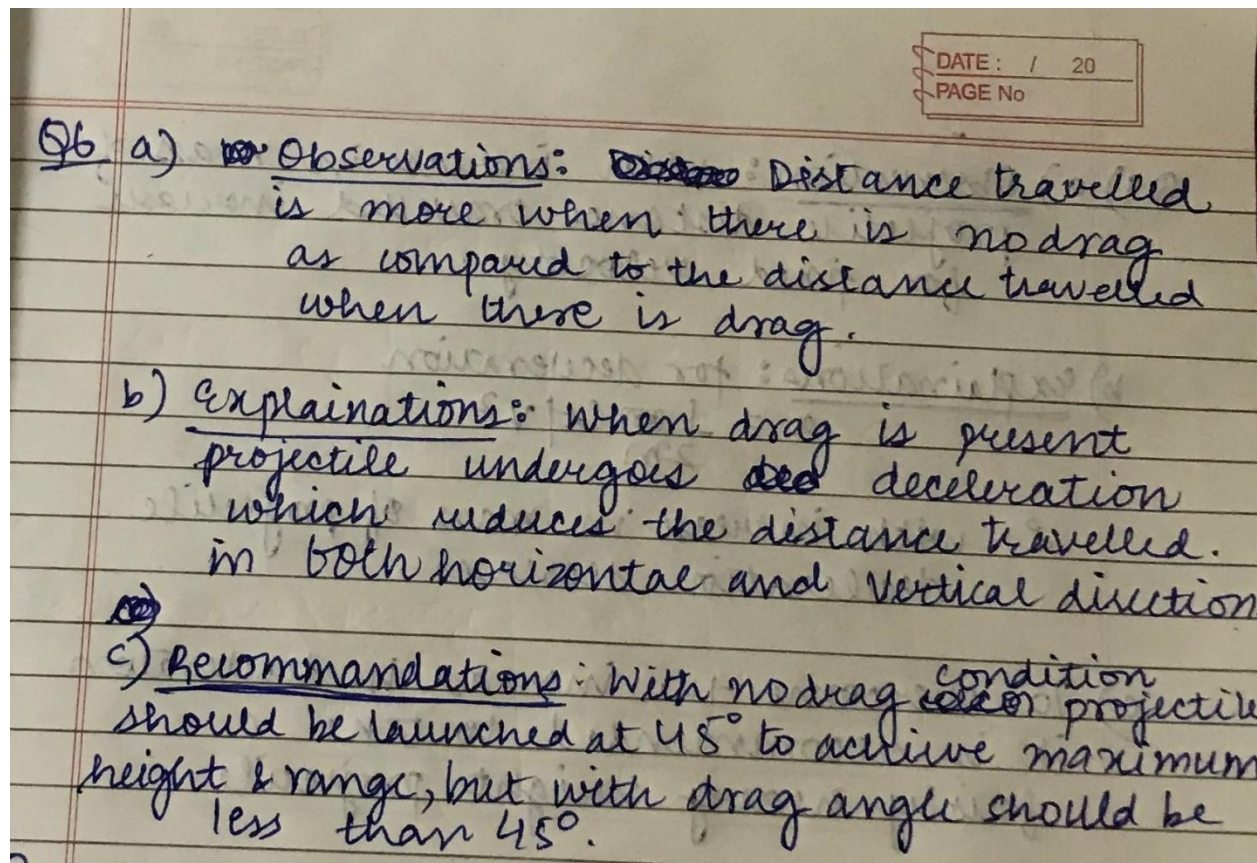 DATE : / 20
PAGE No
Q6 a) Observations: Distance travelled
is more when there is no drag
as compared to the distance travelled
when there is drag.
b) Explainations: When drag is present
projectile undergoes deceleration
which reduces the distance travelled.
in both horizontal and vertical direction
c) Recommandations: With no drag condition projectile
should be launched at 45° to achive maximum
height & range, but with drag angle should be
less than 45°.